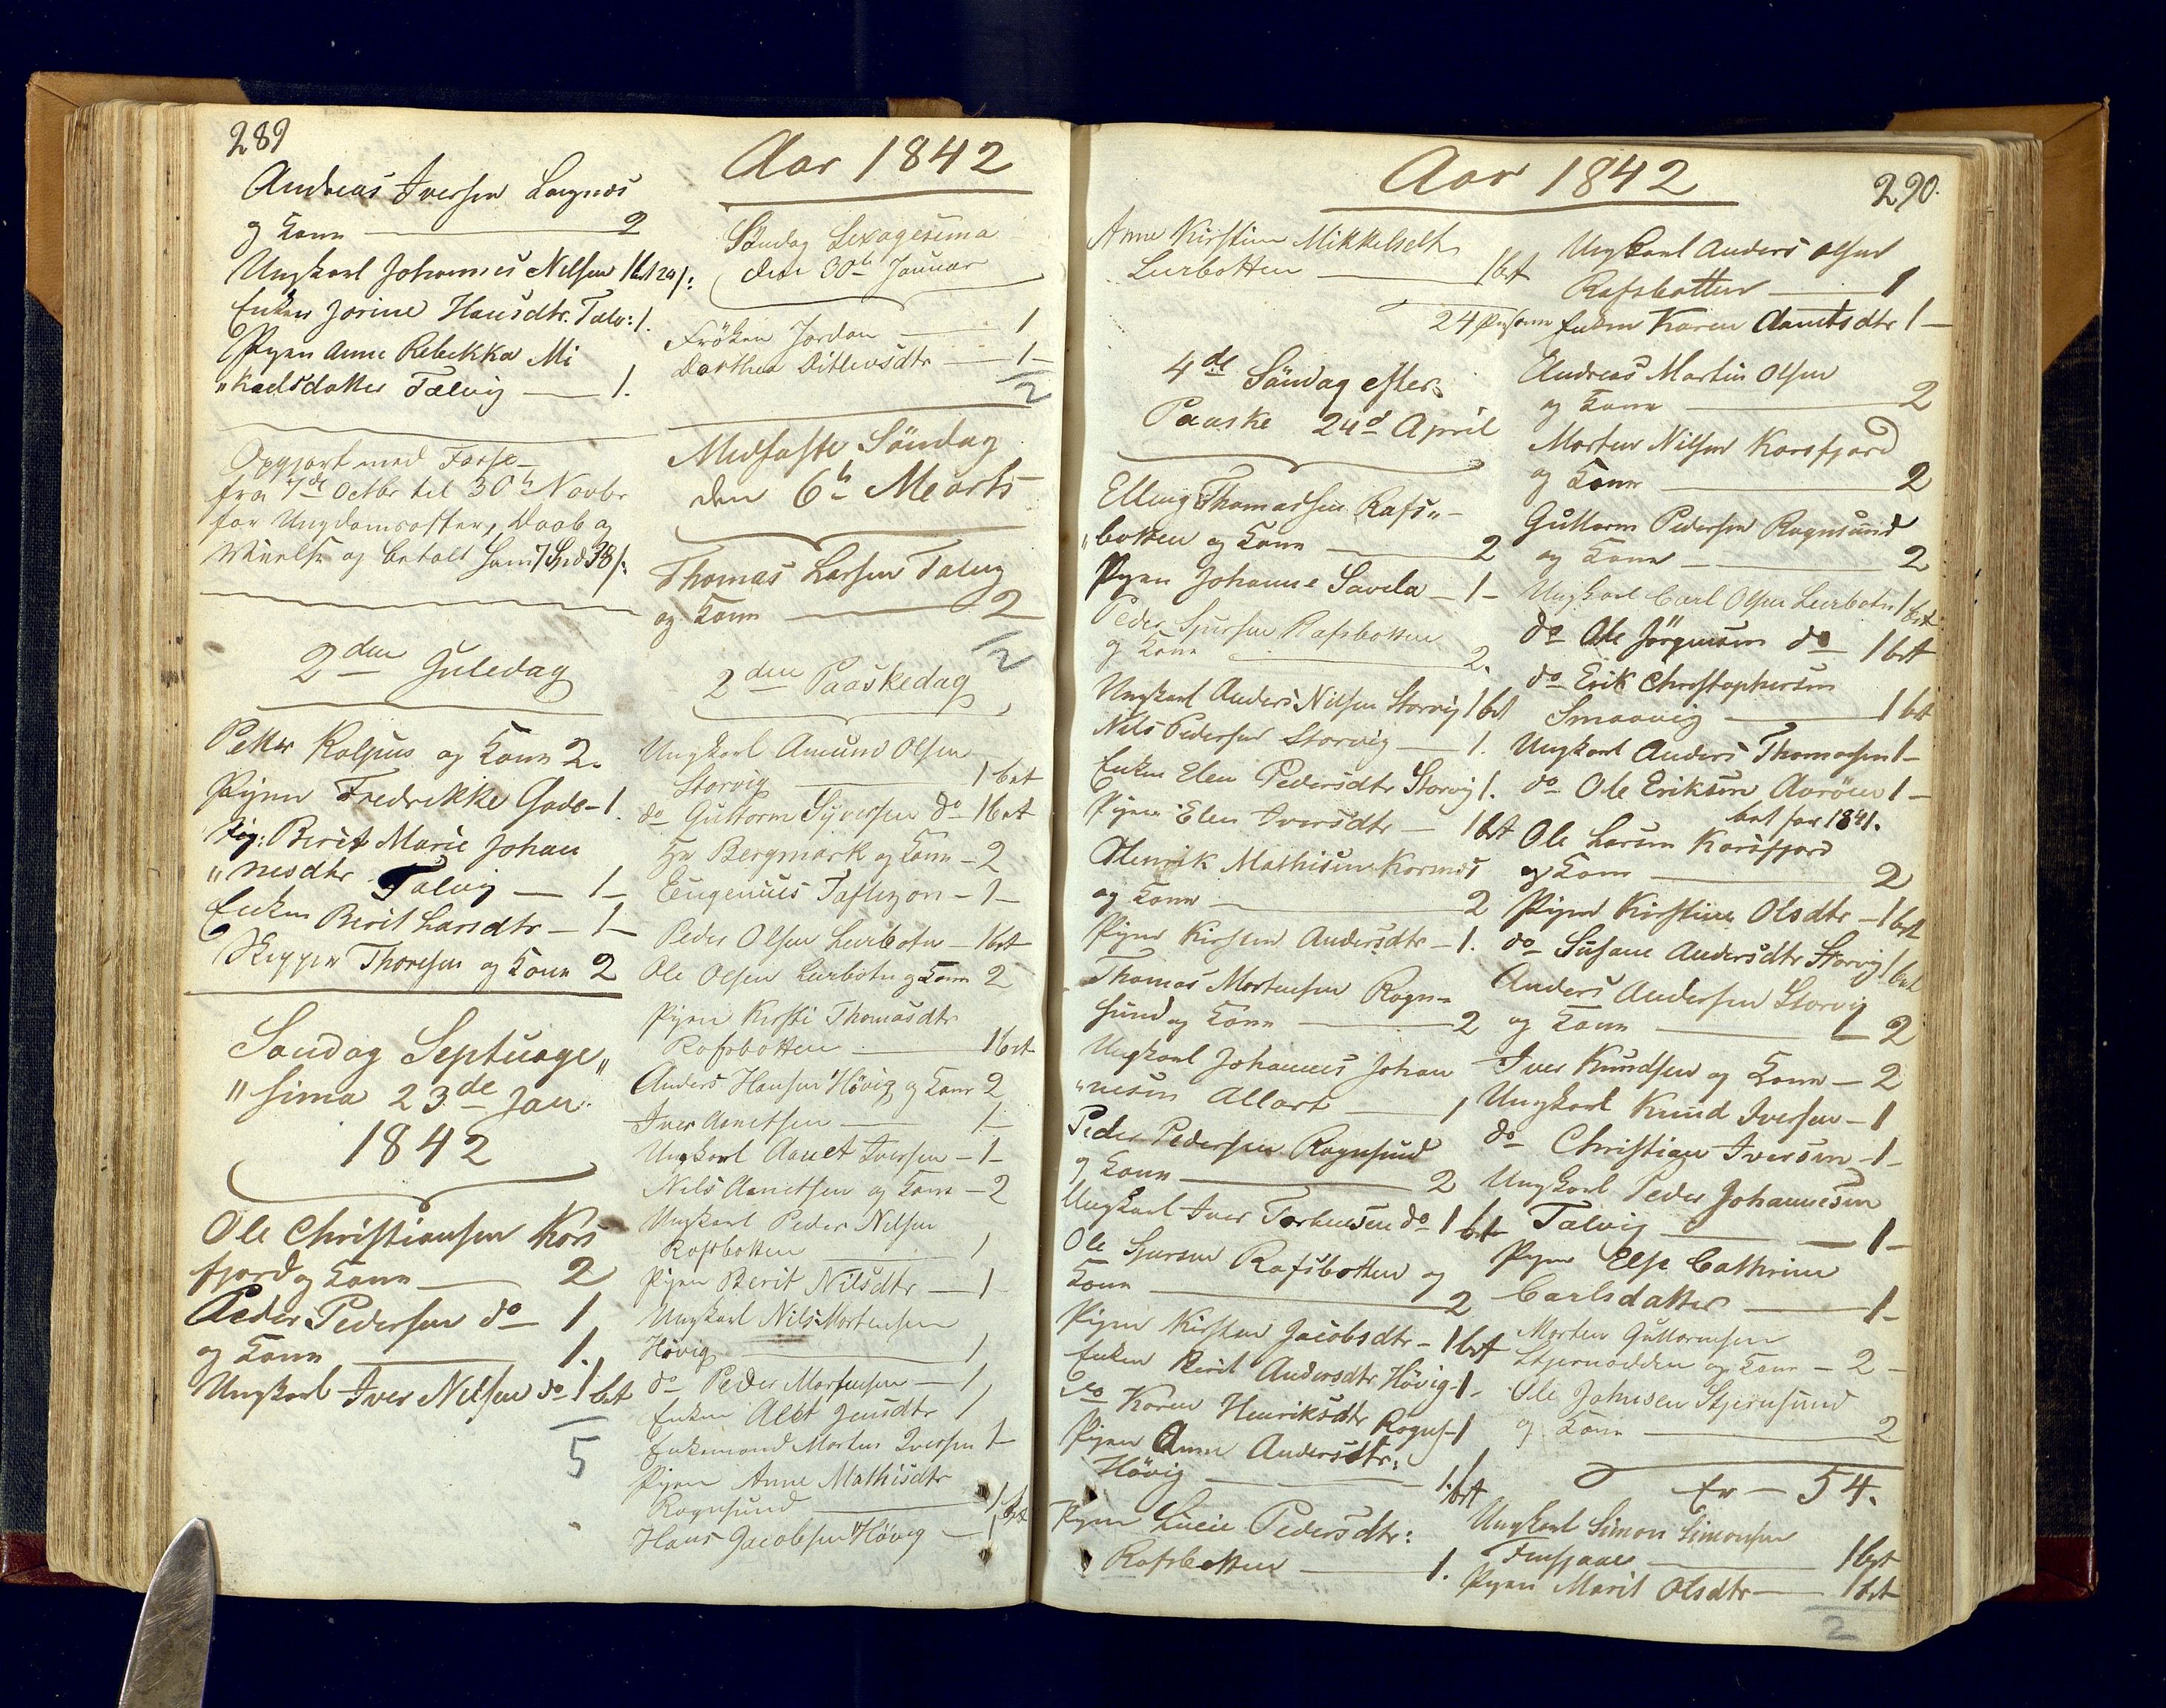 289
Andreas Iversen Langnæs
og Kone 2
Ungkarl Johannes Nilsen 1 bet 24 s:
Enken Jorine Hansdtr. Talv: 1.
Pigen Anne Rebekka Mi
"kaelsdatter Talvig 1.
Opgjort med Forse
fra 7de Octbr til 30te Novbr
for Ungdomsoffer, Daab og
og betalt ham 7 Spd 38 s:
2den Juledag
Petter Kolpus og Kone 2.
Pigen Fredrikke Gade - 1.
Pig: Berit Marie Johan
"nesdtr Talvig - 1 -
Enken Berit Larsdtr - 1 -
Skipper Thoresen og Kone 2
Søndag Septuage"
"sima 23de Jan:
1842
Ole Christiansen Kors
fjord og Kone 2
Peder Pedersen do 1
og Kone 1.
Ungkarl Iver Nilsen do 1 bet
5
Aar 1842
Søndag Sexagesima
den 30te Januar
Frøken Jordan 1
Dorthea Ditlevsdtr 1 -
2
Midfaste Søndag
den 6te Marts
Thomas Larsen Talvig
og Kone 2
2
2den Paaskedag
Ungkarl Amund Olsen
Storvig 1 bet
do Guttorm Syversen do 1 bet
Hr Bergmark og Kone - 2
Eugenius Taftezon - 1 -
Peder Olsen Leirbotn - 1 bet
Ole Olsen Leirbotn og Kone 2
Pigen Kirsti Thomasdtr
Rafsbotten 1 bet
Anders Hansen Høvig og Kone 2
Iver Amtsen 1 -
Ungkarl Amet Iversen - 1 -
Nils Amtsen og Kone - 2
Ungkarl Peder Nilsen
Rafsbotten 1
Pigen Berit Nilsdtr - 1
Ungkarl Nils Mortensen
Høvig 1
do Peder Mortensen - 1
Enken Alet Jensdtr 1
Enkemand Morten Iversen 1 -
Pigen Anne Mathisdtr
Rognsund 1 bet
Hans Jacobsen Høvig - 1
Aar 1842
290.
Anne Kirstine Mikkelsdtr
Leirbotten 1 bet
24 Personer
4de Søndag efter
Paaske 24de April
Elling Thomassen Rafs"
"botten og Kone 2
Pigen Johanne Savela - 1 -
Peder Sjursen Rafsbotten
og Kone 2.
Ungkarl Anders Nilsen Storvig 1 bet
Nils Pedersen Storvig 1.
Enken Elen Pedersdtr Storvig 1.
Pigen Elen Iversdtr - 1 bet
Henrik Mathisen Kornes
og Kone 2
Pigen Kirsten Andersdtr - 1.
Thomas Mortensen Rogn-
sund og Kone 2
Ungkarl Johannes Johan
"nesen Allart 1
Peder Pedersen Rognsund
og Kone 2
Ungkarl Iver Torbensen do 1 bet
Ole Sjursen Rafsbotten og
Kone 2
Pigen Kirsten Jacobsdtr - 1 bet
Enken Berit Andersdtr Høvig - 1 -
do Karen Henriksdtr Rogns - 1
Pigen Anne Andersdtr:
Høvig 1 bet
Pigen Lucie Pedersdtr:
Rafsbotten 1.
Ungkarl Anders Olsen
Rafsbotten 1
Enken Karen Amtsdtr 1 -
Andreas Martin Olsen
og Kone 2
Morten Nilsen Korsfjord
og Kone 2
Guttorm Pedersen Rognsund
og Kone 2
Ungkarl Carl Olsen Leirbotn 1 bet
do Ole Jörgensen do 1 bet
do Erik Christophersen
Smaavig 1 bet
Ungkarl Anders Thomasen 1 -
do Ole Eriksen Aarøen 1 -
bet for 1841.
Ole Larsen Korsfjord
og Kone 2
Pigen Kirstine Olsdtr - 1 bet
do Susane Andersdtr Storvig 1 bet
Anders Andersen Storvig
og Kone 2
Iver Knudsen og Kone - 2
Ungkarl Knud Iversen - 1
do Christian Iversen - 1 -
Ungkarl Peder Johannesen
Talvig 1 -
Pigen Else Cathrine
Carlsdatter 1 -
Morten Guttormsen
Stjernodden og Kone - 2 -
Ole Johnsen Stjernsund
og Kone 2
Er - 54.
Ungkarl Simon Simonsen
1 bet
Pigen Marit Olsdtr 1 bet
2